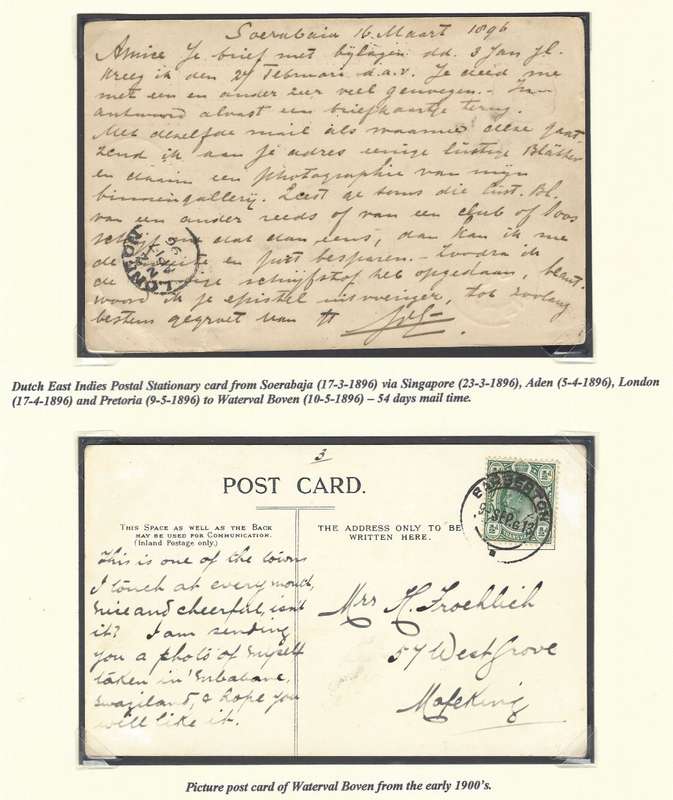 Soerabaia 16 Maart 1896
Amice Je brief met bijlagen dd. 3 Jan jl.
kreeg ik den 27 Februari d.a.v. Je deed me
met een en ander zeer veel genoegen. - In
antwoord alvast een briefkaartje terug.
Met dezelfde mail als waarmee deze gaat
zend ik aan je adres eenige lustige Blätter
en daarin een photographie van mijn
binnengallerij. Leest ge soms die Lust. Bl.
van een ander reeds of van een club of
dat dan eens, dan kan ik me
de moeite en port besparen. - Zoodra ik
de schrijfstof heb opgedaan, beant
woord ik je epistel uitvoeriger, tot zoolang
bestens gegroet van
LONDON
AP 17
96
Dutch East Indies Postal Stationary card from Soerabaja (17-3-1896) via Singapore (23-3-1896), Aden (5-4-1896), London
(17-4-1896) and Pretoria (9-5-1896) to Waterval Boven (10-5-1896) – 54 days mail time.
3
POST CARD.
THIS SPACE AS WELL AS THE BACK
MAY BE USED FOR COMMUNICATION.
(Inland Postage only.)
THE ADDRESS ONLY TO BE
WRITTEN HERE.
BARBERTON
This is one of the towns
I touch at every month,
nice and cheerful, isn't
it? I am sending
you a photo of myself
taken in Mbabane,
Swaziland, & hope you
will like it.
Mrs H. Froehlich
57 West Grove
Mafeking
Picture post card of Waterval Boven from the early 1900's.